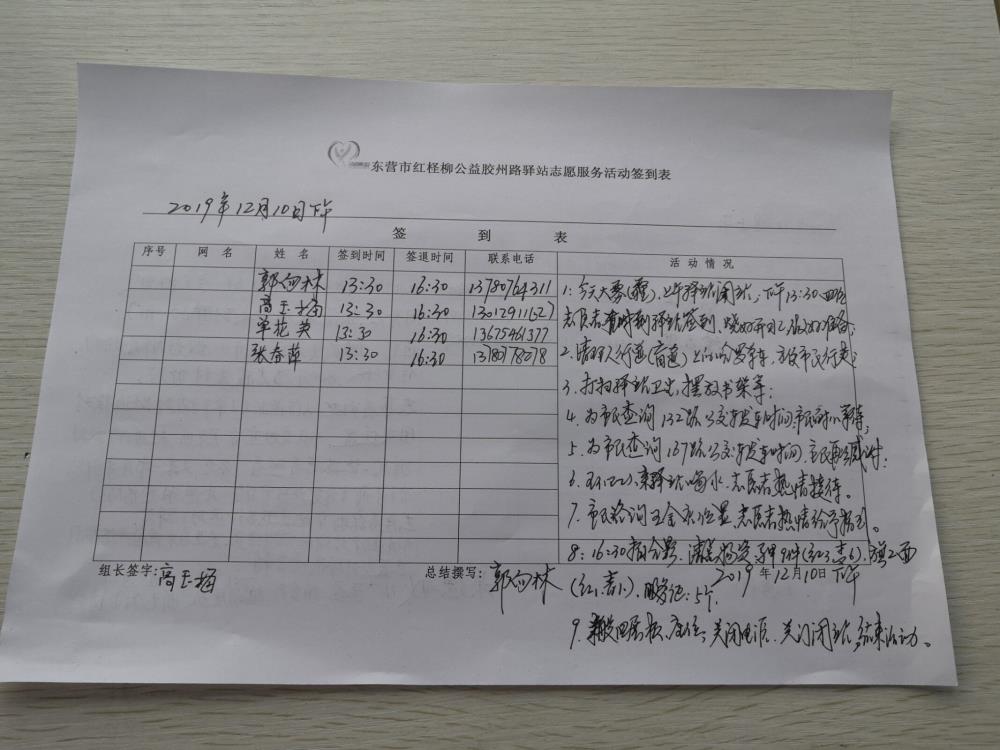 东营市红柽柳公益胶州路驿站志愿服务活动签到表
2019年12月10日下午
签 到 表
序号 网 名 姓 名 签到时间 签退时间 联系电话 活 动 情 况
郭向林 13:30 16:30 13780764311
高玉梅 13:30 16:30 13012911627
单花英 13:30 16:30 13675461377
张春萍 13:30 16:30
1:今天大雾 上午驿站闭站,下午13:30四位
志愿者 到驿站签到,烧好开水 做好准备;
2.清理人行道(盲道)上的 单车,方便市民行走;
3.打扫驿站卫生,摆放书架等;
4.为市民查询132路公交车发车时间,市民
5.为市民查询167路公交车发车时间,市民再三感谢;
6. 来驿站喝水,志愿者热情接待。
7.市民咨询五金 位置,志愿者热情给予指引。
8:16:30 马甲9件(红3,青6),旗2面
(红1,青1), 5个.
9. 座位,关闭电源.关门闭站,结束活动。
组长签字:高玉梅 总结撰写:郭向林 2019年12月10日下午